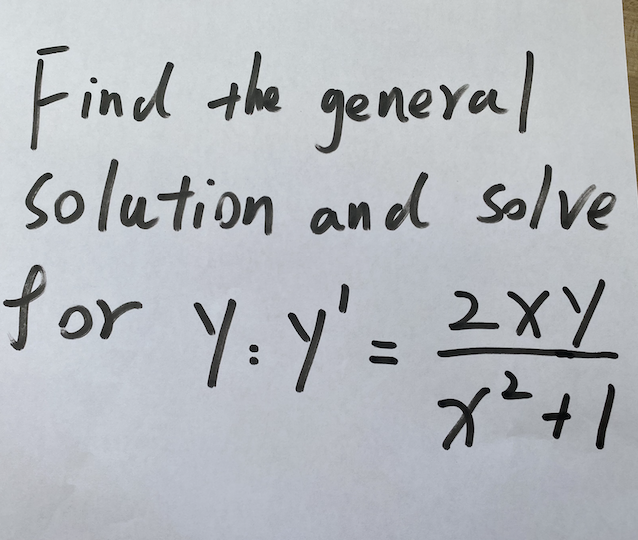 Find the general
solution and solve
for y: y' = 2xy / x²+1